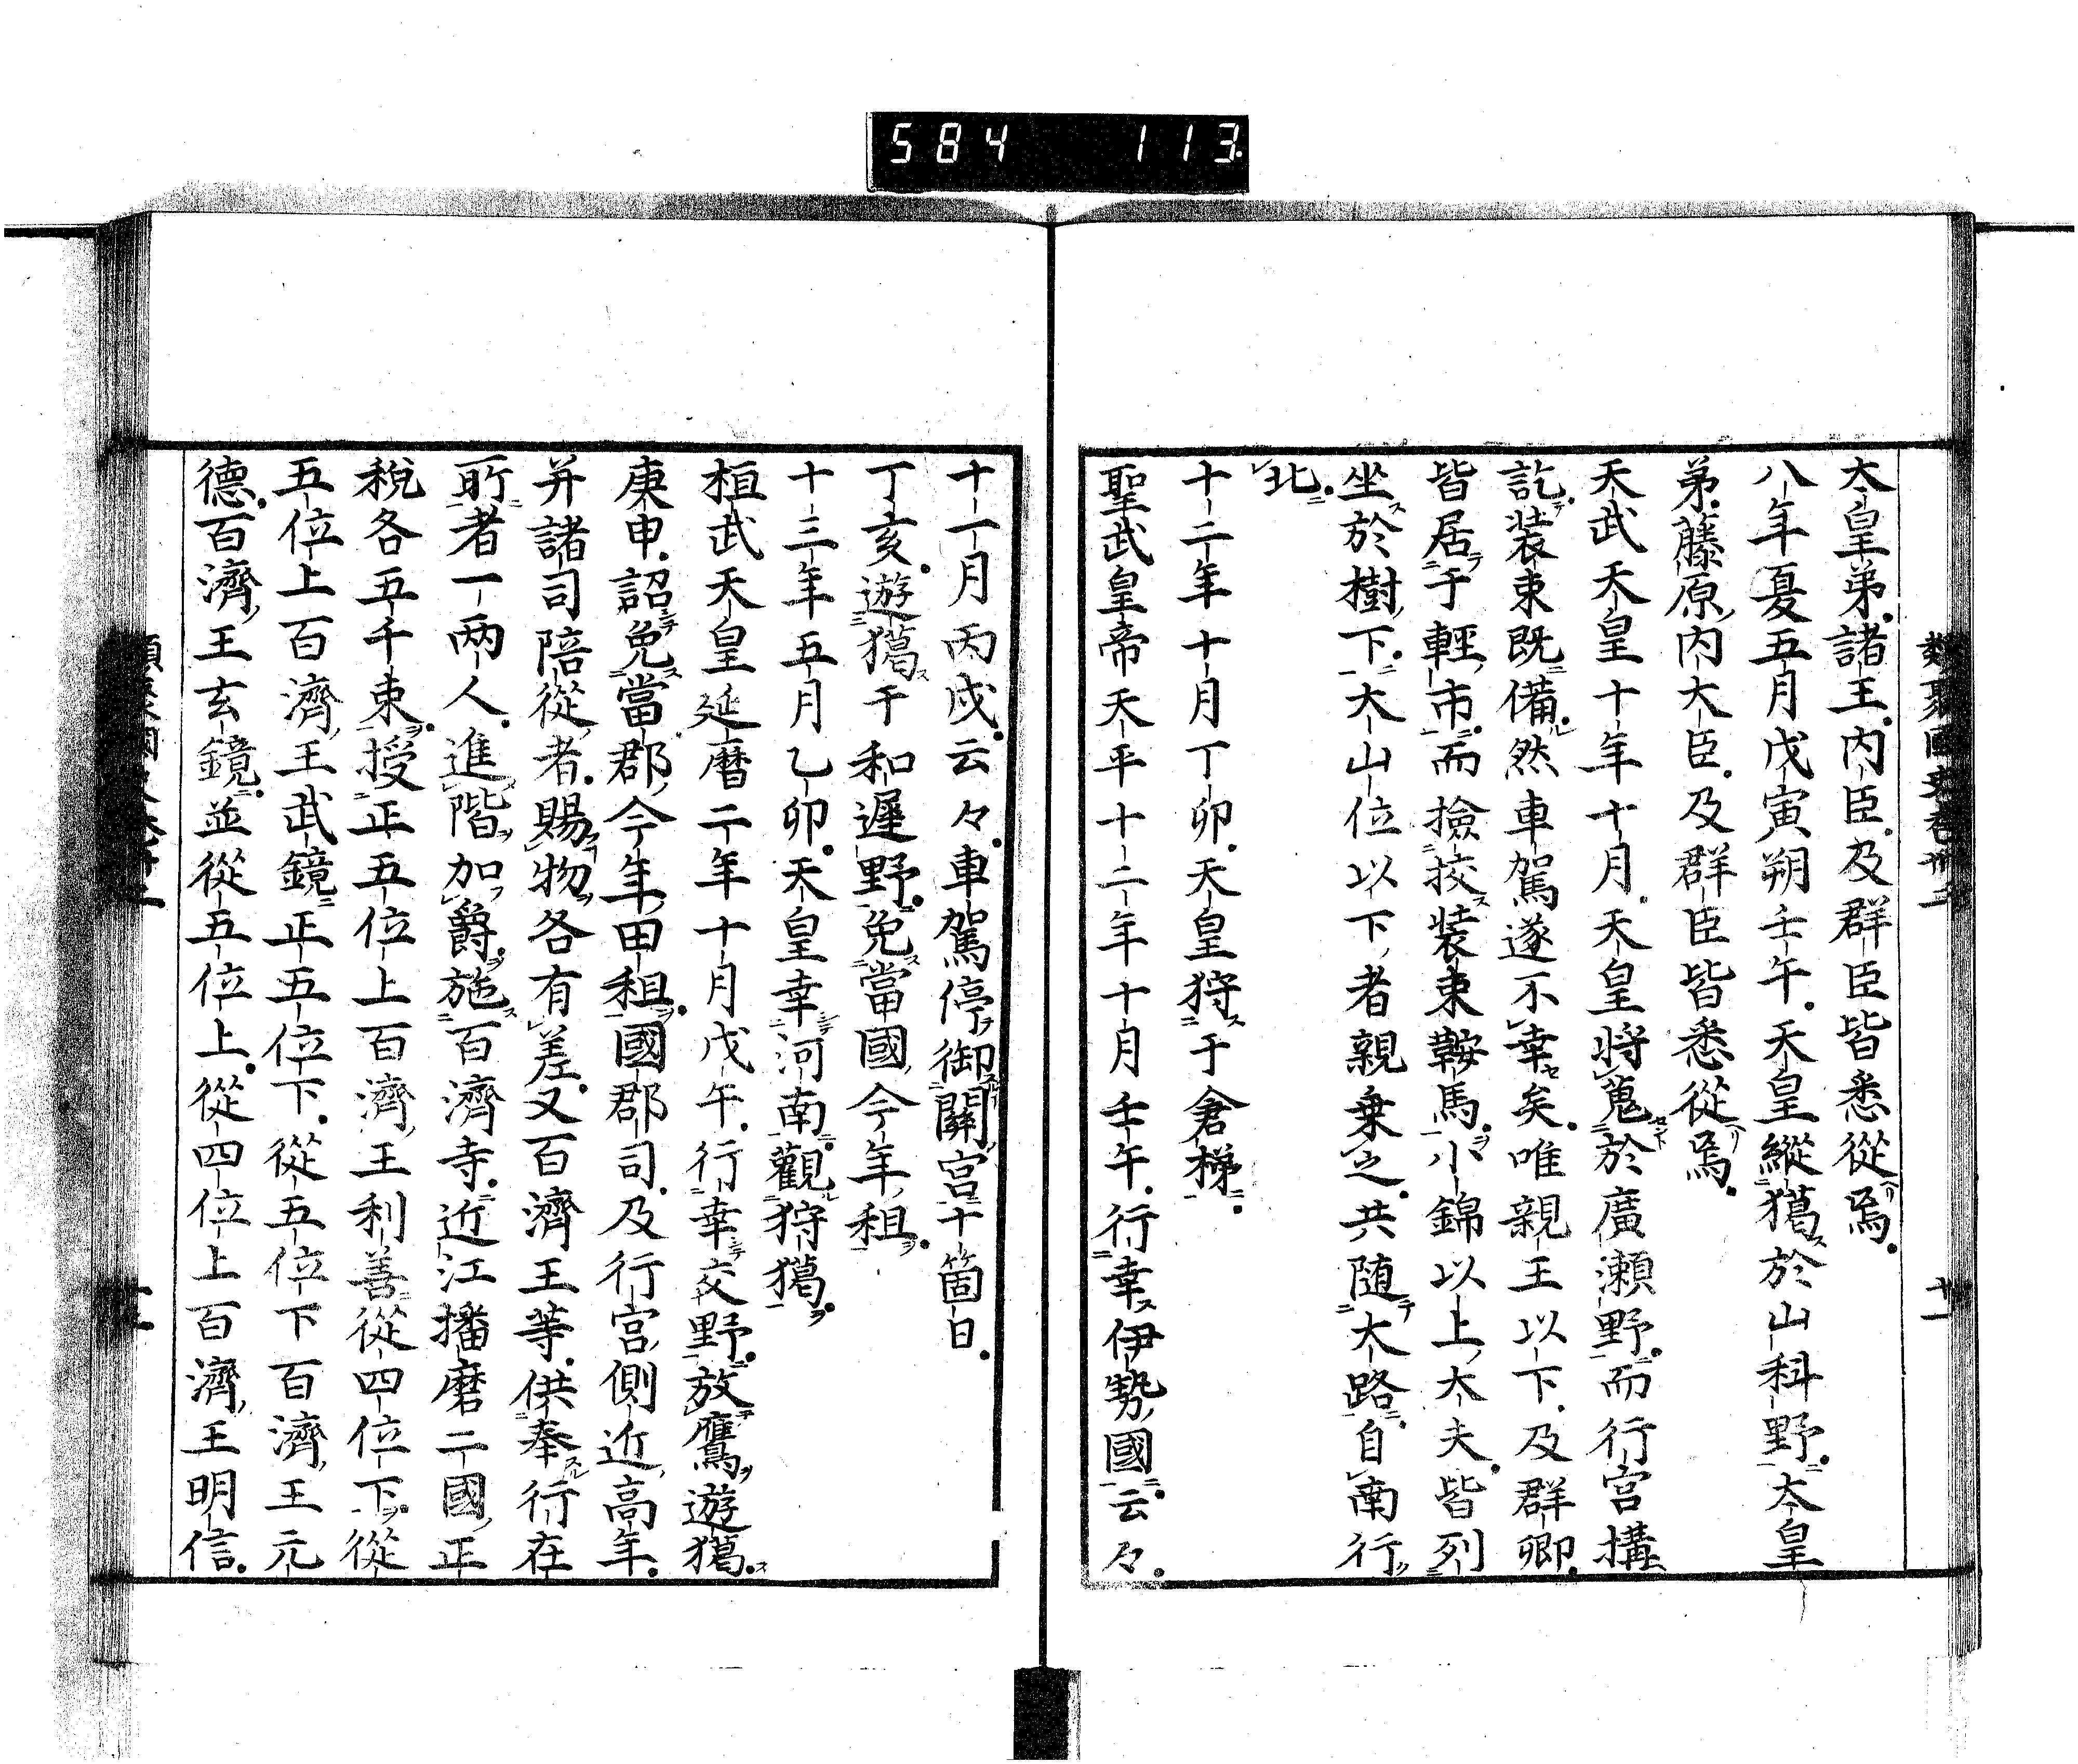 584 113
類聚國史卷卅二 十一
大皇弟諸王内臣及群臣皆悉從焉
八年夏五月戊寅朔壬午天皇縱獦於山科野大皇
弟藤原内大臣及群臣皆悉從焉
天武天皇十年十月天皇將蒐於廣瀬野而行宮搆
訖装束既備然車駕遂不幸矣唯親王以下及群卿
皆居于輕市而撿挍装束鞍馬小錦以上大夫皆列
坐於樹下大山位以下者親乗之共随大路自南行
北
十二年十月丁卯天皇狩于倉梯
聖武皇帝天平十二年十月壬午行幸伊勢國云々
十一月丙戌云々車駕停御關宮十箇日
丁亥遊獦于和遅野免當國今年租
十三年五月乙卯天皇幸河南觀狩獦
桓武天皇延暦二年十月戊午行幸交野放鷹遊獦
庚申詔免當郡今年田租國郡司及行宮側近高年
并諸司陪從者賜物各有差又百濟王等供奉行在
所者一兩人進階加爵施百濟寺近江播磨二國正
税各五千束授正五位上百濟王利善從四位下從
五位上百濟王武鏡正五位下從五位下百濟王元
德百濟王玄鏡並從五位上從四位上百濟王明信